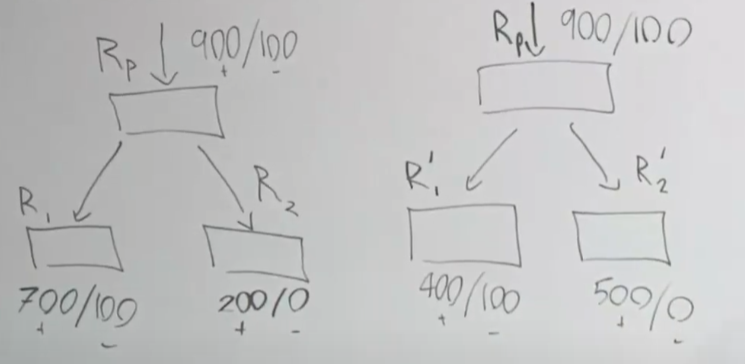 Rp 900/100
+ -
R1 R2
700/100 200/0
+ - + -
Rp 900/100
R1' R2'
400/100 500/0
+ - + -